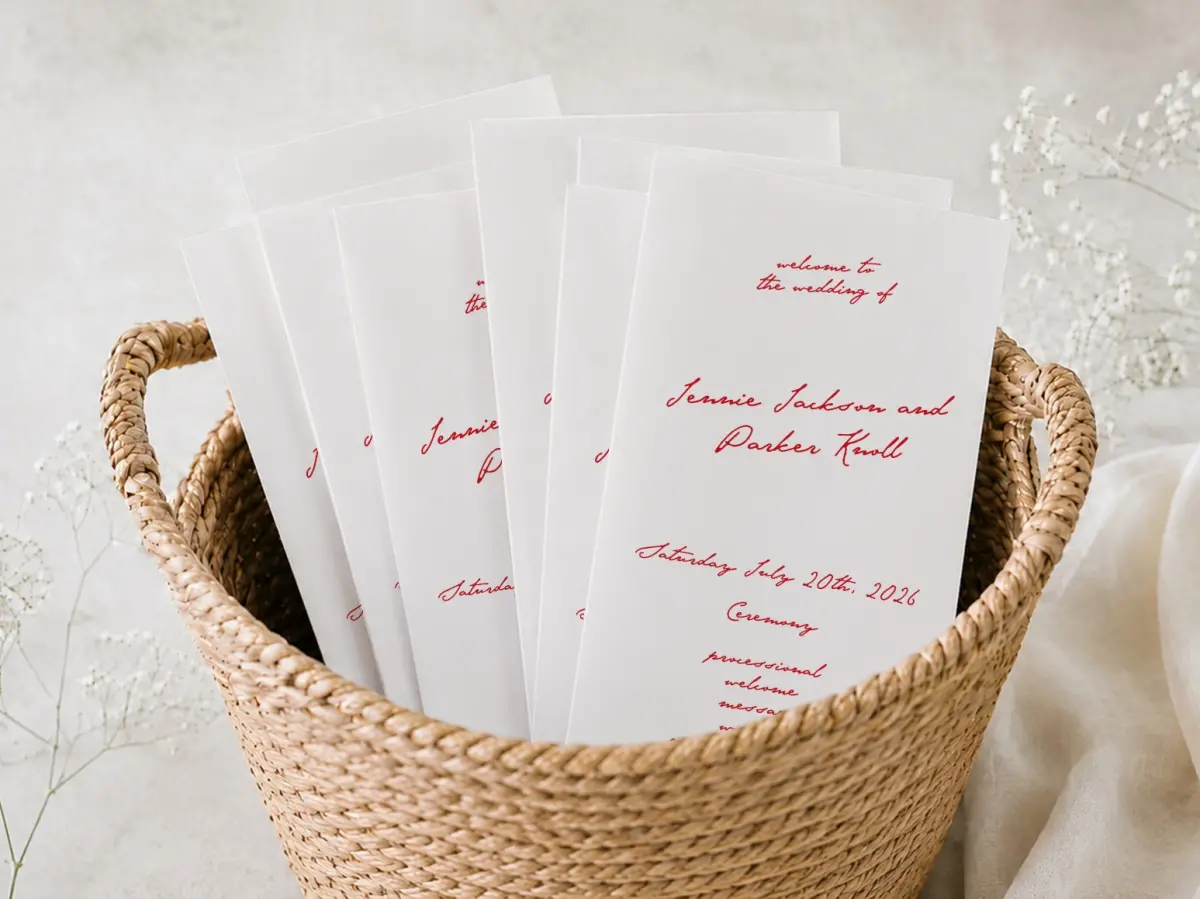 welcome to
the wedding of
Jennie Jackson and
Parker Knoll
Saturday July 20th, 2026
Ceremony
processional
welcome
the
Jennie